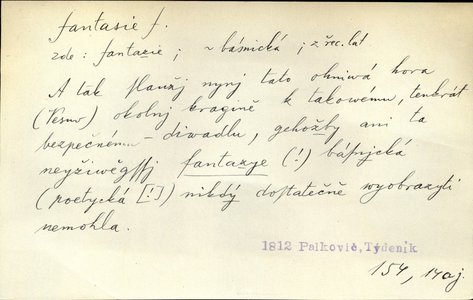 fantasie f.
zde: fantazie; ~ básnická; z řec. lat.
A tak slaužj nynj tato ohniwá hora
(Vesuv) okolnj kragině k takowému, tenkrát
bezpečnému – diwadlu, gehožby ani ta
neyžiwěgssj fantazye (!) básnjcká
(poetycká [!]) nikdý dostatečně wyobrazyti
nemohla.
1812 Palkovič, Týdeník
154, 14aj.